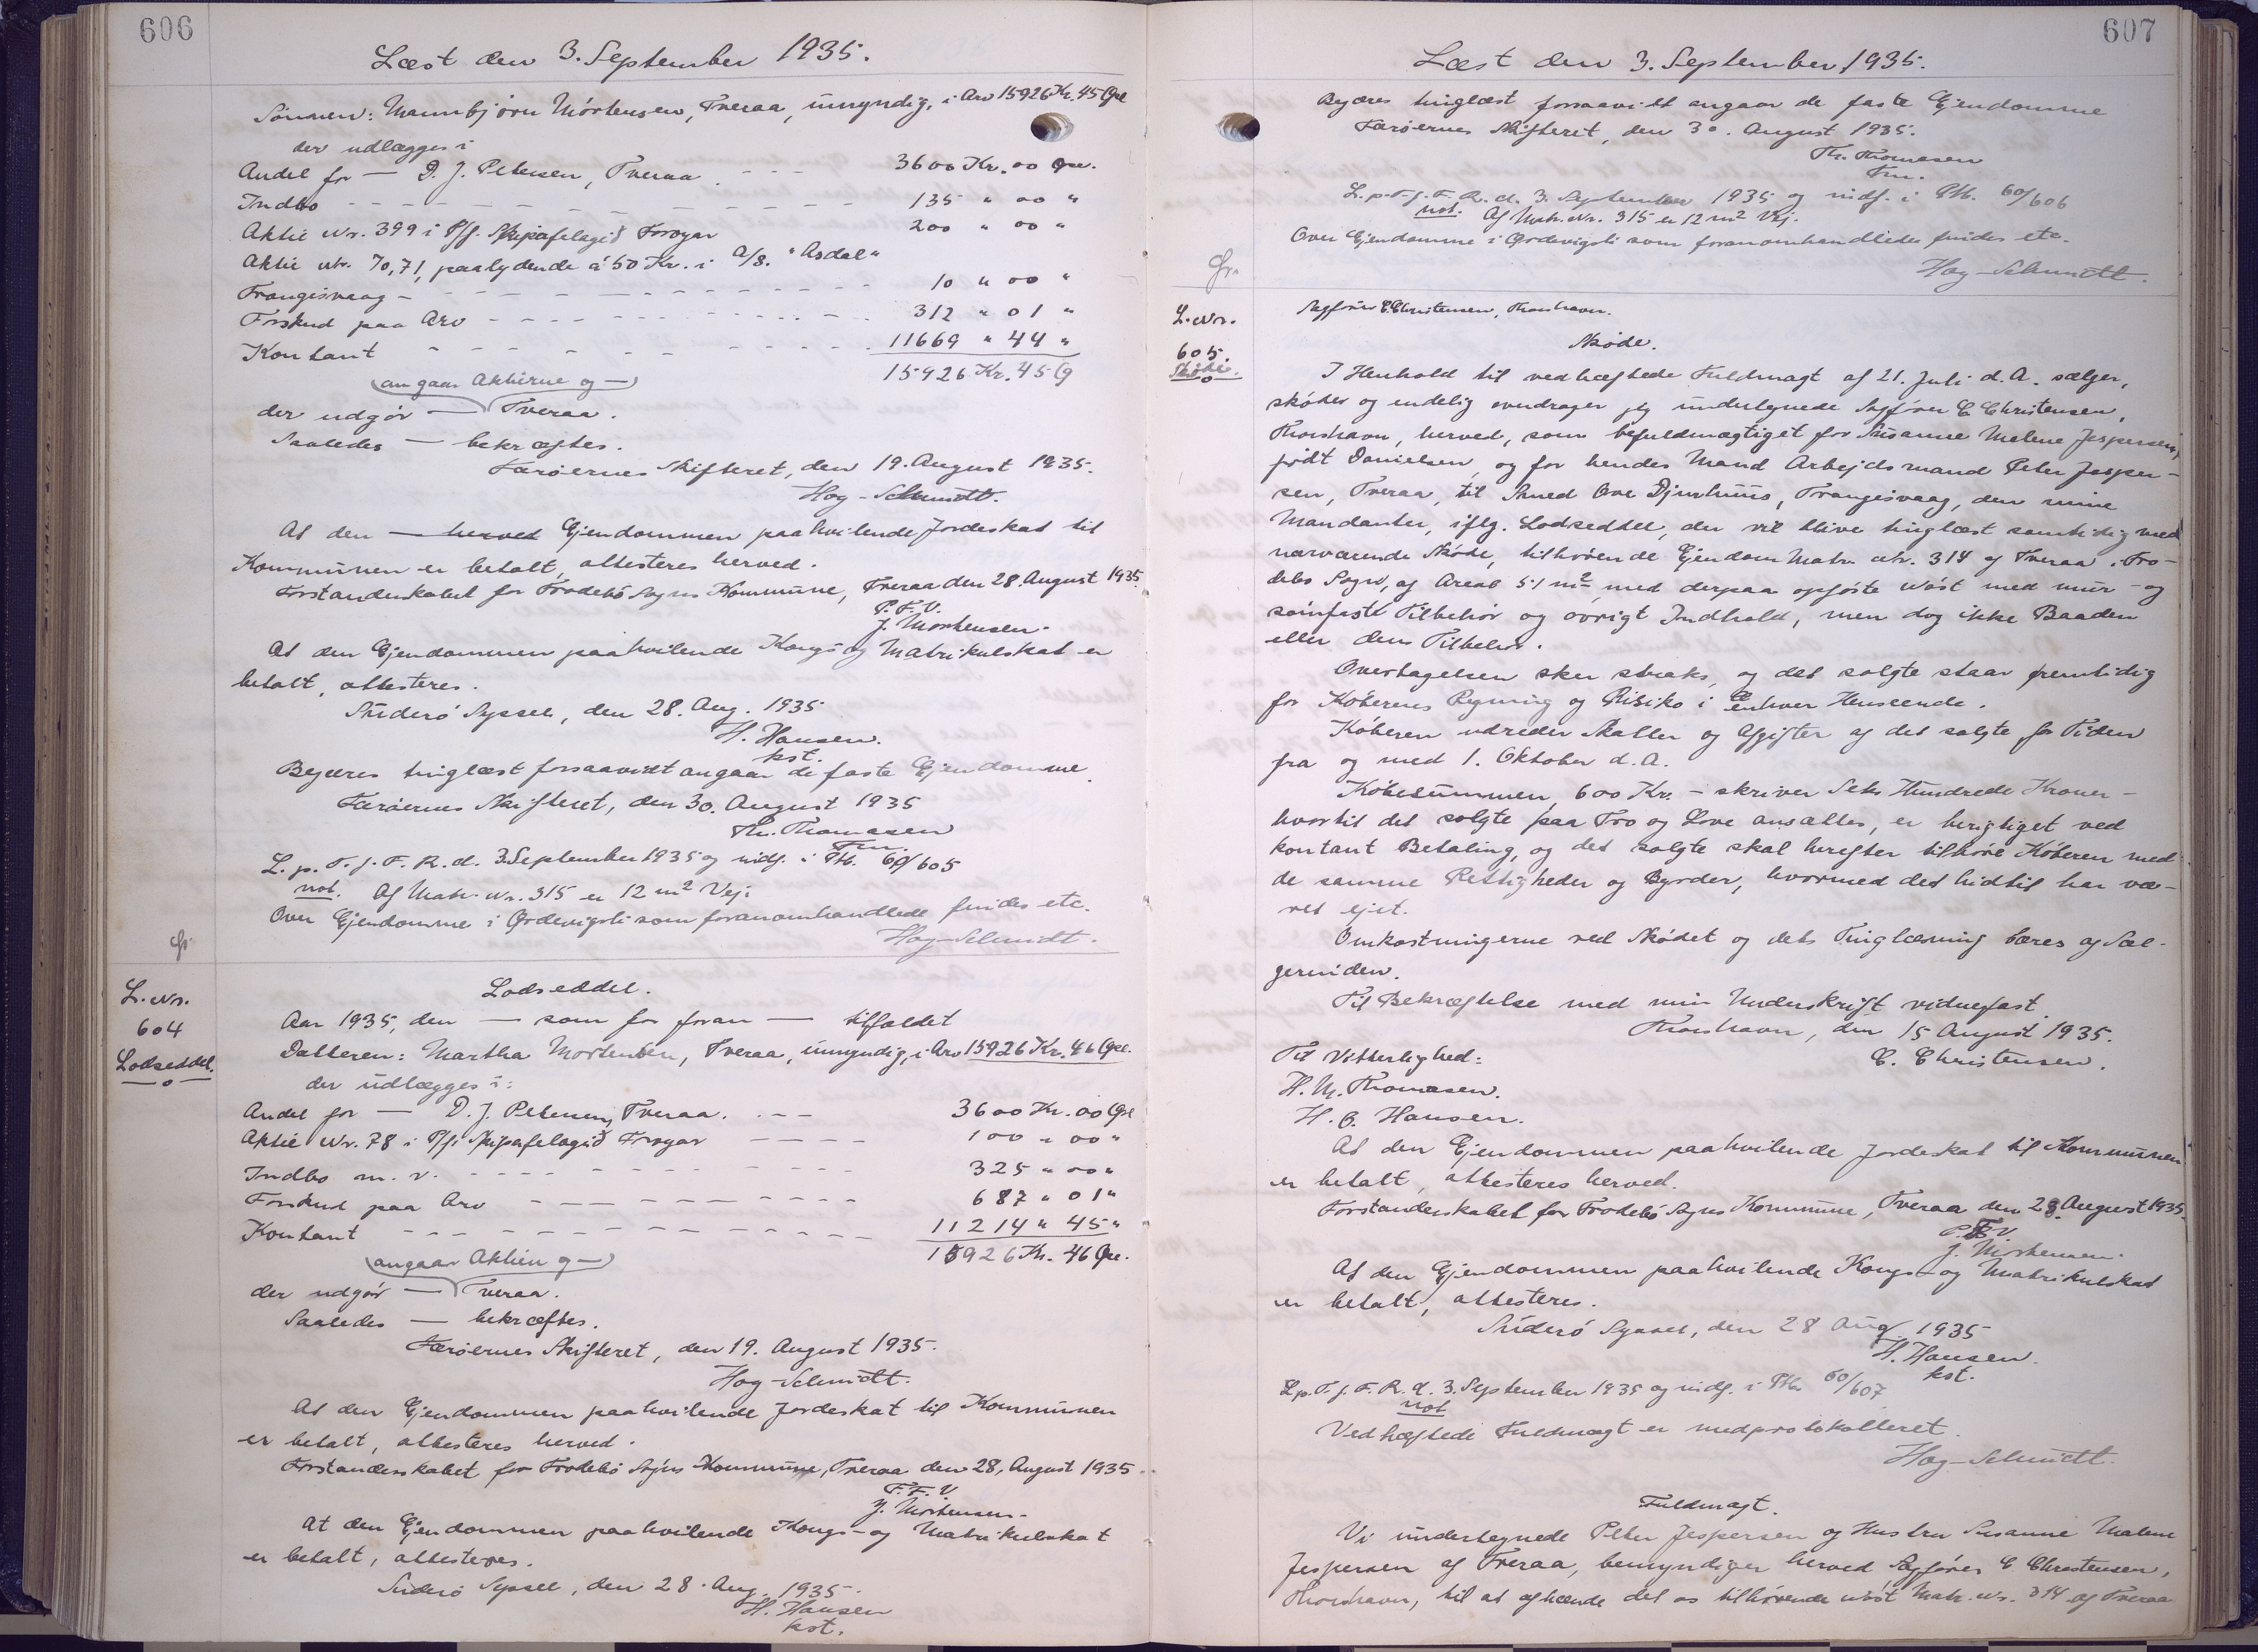 606
Læst den 3. September 1935.
Sønnen: Mannbjörn Mörtensen, Tveraa, umyndig, i Arv 15926 Kr. 45 Øre
der udlægges i
Andel for — D. J. Petersen, Tveraa - - - 3600 Kr. 00 Øre.
Indbo - - - - - - - - 135 " 00 "
Aktie Nr. 399 i P/f. Skipafelagið Føroyar 200 " 00 "
Aktie Nr. 70, 71, paalydende á 50 Kr. i A/S. "Asdal"
Trangisvaag - - - - - - - 10 " 00 "
Forskud paa Arv - - - - - - - 312 " 01 "
Kontant - - - - - - - 11669 " 44 "
15926 Kr. 45 Ø
(angaar Aktierne og —)
der udgør — Tveraa.
Saaledes — bekræftes.
Færøernes Skifteret, den 19. August 1935.
Høg-Schmidt.
At den — herved Ejendommen paahvilende Jordeskat til
Kommunen er betalt, attesteres herved.
Forstanderskabet for Frodebø Sogns Kommune, Tveraa den 28. August 1935
P. F. V.
J. Mortensen.
At den Ejendommen paahvilende Kongs- og Matrikulskat er
betalt, attesteres.
Suderø Syssel, den 28. Aug. 1935
H. Hansen.
kst.
Begæres tinglæst forsaavidt angaar de faste Ejendomme.
Færøernes Skifteret, den 30. August 1935
Th. Thomasen
Fm.
L. p. T. f. F. R. d. 3. September 1935 og indf. i Pb. 60/605
not. Af Matr. Nr. 315 er 12 m² Vej.
Over Ejendomme i Ørdevigsli som foranomhandlede findes etc.
Høg-Schmidt.
L. Nr.
604
Lodseddel.
Lodseddel.
Aar 1935, den — som for foran — tilfaldet
Datteren: Martha Mortensen, Tveraa, umyndig, i Arv 15926 Kr. 46 Øre.
der udlægges i:
Andel for — D. J. Petersen, Tveraa. - - - 3600 Kr. 00 Øre
Aktie Nr. 78 i P/f. Skipafelagið Føroyar - - - - 100 " 00 "
Indbo m. v. - - - - - - - - 325 " 00 "
Forskud paa Arv - - - - - - - - 687 " 01 "
Kontant - - - - - - - - 11214 " 45 "
15926 Kr. 46 Øre.
(angaar Aktien og —)
der udgør — Tveraa.
Saaledes — bekræftes.
Færøernes Skifteret, den 19. August 1935.
Høg-Schmidt.
At den Ejendommen paahvilende Jordeskat til Kommunen
er betalt, attesteres herved.
Forstanderskabet for Frodebø Sogns Kommune, Tveraa den 28. August 1935.
P. F. V.
J. Mortensen.
At den Ejendommen paahvilende Kongs- og Matrikulskat
er betalt, attesteres.
Suderø Syssel, den 28. Aug. 1935.
H. Hansen
kst.
607
Læst den 3. September 1935.
Begæres tinglæst forsaavidt angaar de faste Ejendomme
Færøernes Skifteret, den 30. August 1935.
Th. Thomasen
Fm.
L. p. T. f. F. R. d. 3. September 1935 og indf. i Pb. 60/606
not. Af Matr. Nr. 315 er 12 m² Vej.
Over Ejendomme i Ørdevigsli som foranomhandlede findes etc.
Høg-Schmidt.
L. Nr.
605.
Skøde.
Sagfører C. Christensen, Thorshavn.
Skøde.
I Henhold til vedhæftede Fuldmagt af 21. Juli d. A. sælger,
skøder og endelig overdrager jeg undertegnede Sagfører C Christensen,
Thorshavn, herved, som befuldmægtiget for Susanne Malene Jespersen,
født Danielsen, og for hendes Mand Arbejdsmand Peter Jesper-
sen, Tveraa, til Smed Ove Djurhuus, Trangisvaag, den mine
Mandanter, iflg. Lodseddel, der vil blive tinglæst samtidig med
nærværende Skøde, tilhørende Ejendom Matr. Nr. 314 af Tveraa, Fro-
debø Sogn, af Areal 51 m² med derpaa opførte Nøst med mur- og
sømfaste Tilbehør og øvrigt Indhold, men dog ikke Baaden
eller dens Tilbehør.
Overtagelsen sker straks, og det solgte staar fremtidig
for Køberens Regning og Risiko i enhver Henseende.
Køberen udreder Skatter og Afgifter af det solgte for Tiden
fra og med 1. Oktober d. A.
Købesummen, 600 Kr. - skriver Seks Hundrede Kroner -
hvortil det solgte paa Tro og Love ansættes, er berigtiget ved
kontant Betaling, og det solgte skal herefter tilhøre Køberen med
de samme Rettigheder og Byrder, hvormed det hidtil har væ-
ret ejet.
Omkostningerne ved Skødet og dets Tinglæsning bæres af Sæl-
gerinden.
Til Bekræftelse med min Underskrift vidnefast.
Thorshavn, den 15 August 1935.
Til Vitterlighed: C. Christensen.
H. M. Thomasen.
H. O. Hansen.
At den Ejendommen paahvilende Jordeskat til Kommunen
er betalt, attesteres herved.
Forstanderskabet for Frodebø Sogns Kommune, Tveraa den 28. August 1935.
P. F. V.
J. Mortensen.
At den Ejendommen paahvilende Kongs- og Matrikulskat
er betalt, attesteres.
Suderø Syssel, den 28 Aug. 1935
H. Hansen.
kst.
L. p. T. f. F. R. d. 3. September 1935 og indf. i Pb. 60/607
not
Vedhæftede Fuldmagt er medprotokolleret.
Høg-Schmidt.
Fuldmagt.
Vi undertegnede Peter Jespersen og Hustru Susanne Malene
Jespersen af Tveraa, bemyndiger herved Sagfører C Christensen,
Thorshavn, til at afhænde det os tilhørende Nøst Matr. Nr. 314 af Tveraa